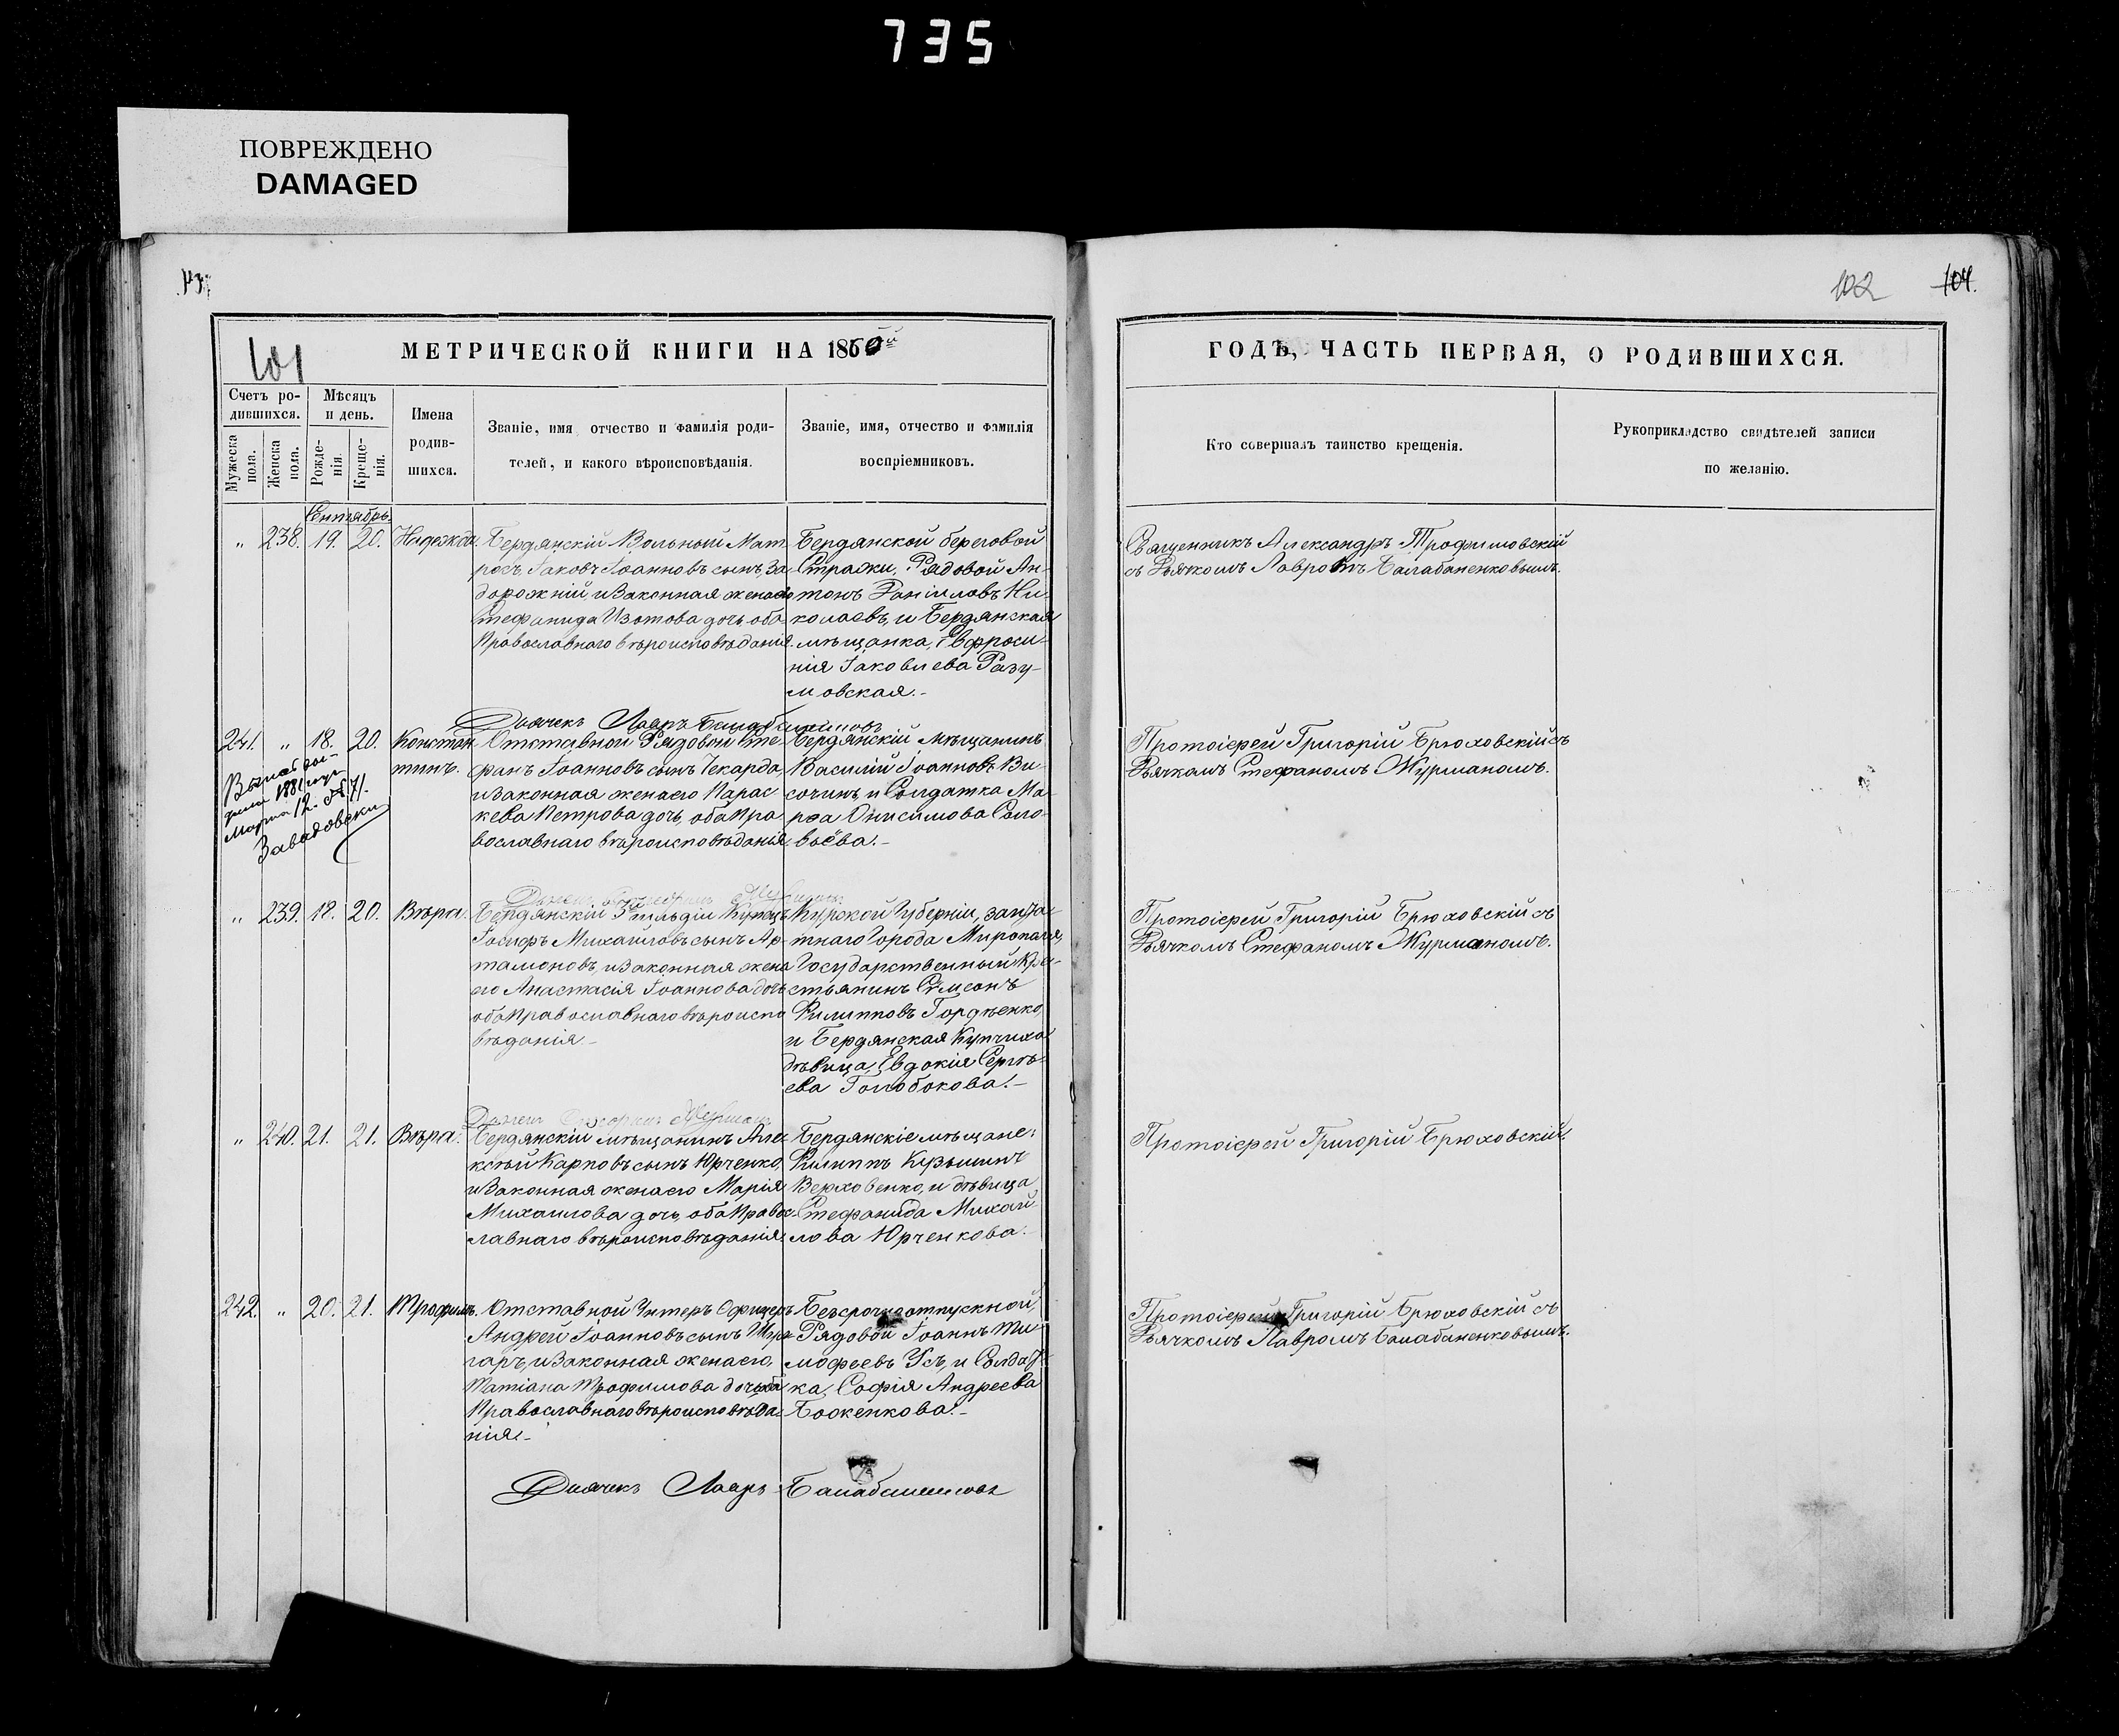 735
ПОВРЕЖДЕНО
DAMAGED
102
104.
101
МЕТРИЧЕСКОЙ КНИГИ НА 1860й
ГОДЪ, ЧАСТЬ ПЕРВАЯ, О РОДИВШИХСЯ.
Счетъ ро-
дившихся.
Мужеска
пола.
Женска
пола.
Мѣсяцъ
и день.
Рожде-
нія.
Креще-
нія.
Имена
родив-
шихся.
Званіе, имя отчество и фамилія роди-
телей, и какого вѣроисповѣданія.
Званіе, имя, отчество и фамилія
воспріемниковъ.
Кто совершалъ таинство крещенія.
Рукоприкладство свидѣтелей записи
по желанію.
Сентябрь.
„ 238. 19. 20. Надежда.
Бердянскій Вольный Мат-
росъ Іаковъ Іоанновъ сынъ, За-
дорожній, и Законная жена его
Стефанида Изотова дочь, оба
Православнаго вѣроисповѣданія.
Бердянской береговой
Стражи, Рядовой Ан-
тонъ Даніиловъ Ни-
колаевъ, и Бердянская
мѣщанка, Евфроси-
нія Іаковлева Разу-
мовская.-
Священникъ Александръ Трофимовскій
съ Дьячкомъ Лавромъ Балабаненковымъ.
Дьячекъ Лавръ
241. „ 18. 20. Констан-
тинъ.
Отставной Рядовой Сте-
фанъ Іоанновъ сынъ Чекарда,
и Законная жена его Парас-
кева Петрова дочь, оба Пра-
вославнаго вѣроисповѣданія.
Бердянскій мѣщанинъ
Василій Іоанновъ Ви-
сочинъ и Солдатка Ма-
рѳа Онисимова Соло-
вьёва.-
Протоіерей Григорій Брюховскій съ
Дьячкомъ Стефаномъ Журманомъ.
1881 года
Марта 12. № 71.
Завадовски
„ 239. 18. 20. Вѣра.
Бердянскій 3 гильдіи Купецъ
Іосифъ Михаиловъ сынъ Ар-
тамоновъ, и Законная жена
его Анастасія Іоаннова дочь
оба православнаго вѣроиспо-
вѣданія.-
Курской Губерніи, заштат-
тнаго Города Мирополя,
Государственный Кре-
стьянинъ Симеонъ
Филипповъ Гордѣенко,
и Бердянская Купчиха
дѣвица, Евдокія Сергѣ-
ева Голобокова.-
Протоіерей Григорій Брюховскій съ
Дьячкомъ Стефаномъ Журманомъ.
„ 240. 21. 21. Вѣра.
Бердянскій мѣщанинъ Але-
ксѣй Карповъ сынъ Юрченко,
и Законная жена его Марія
Михаилова дочь, оба Правос-
лавнаго вѣроисповѣданія.
Бердянскіе мѣщане:
Филиппъ Кузьминъ
Верховенко, и дѣвица
Стефанида Михай-
лова Юрченкова.-
Протоіерей Григорій Брюховскій.
242. „ 20. 21. Трофимъ.
Отставной Унтеръ Офицеръ
Андрей Іоанновъ сынъ
и Законная жена его,
Татіана Трофимова дочь, оба
Православнаго вѣроисповѣда-
нія.-
Безсрочноотпускной,
Рядовой Іоаннъ Ти-
мофеевъ Усъ, и Солдат-
ка, Софія Андреева
Боженкова.-
Протоіерей Григорій Брюховскій съ
Дьячкомъ Лавромъ Балабаненковымъ.
Дьячекъ Лавръ